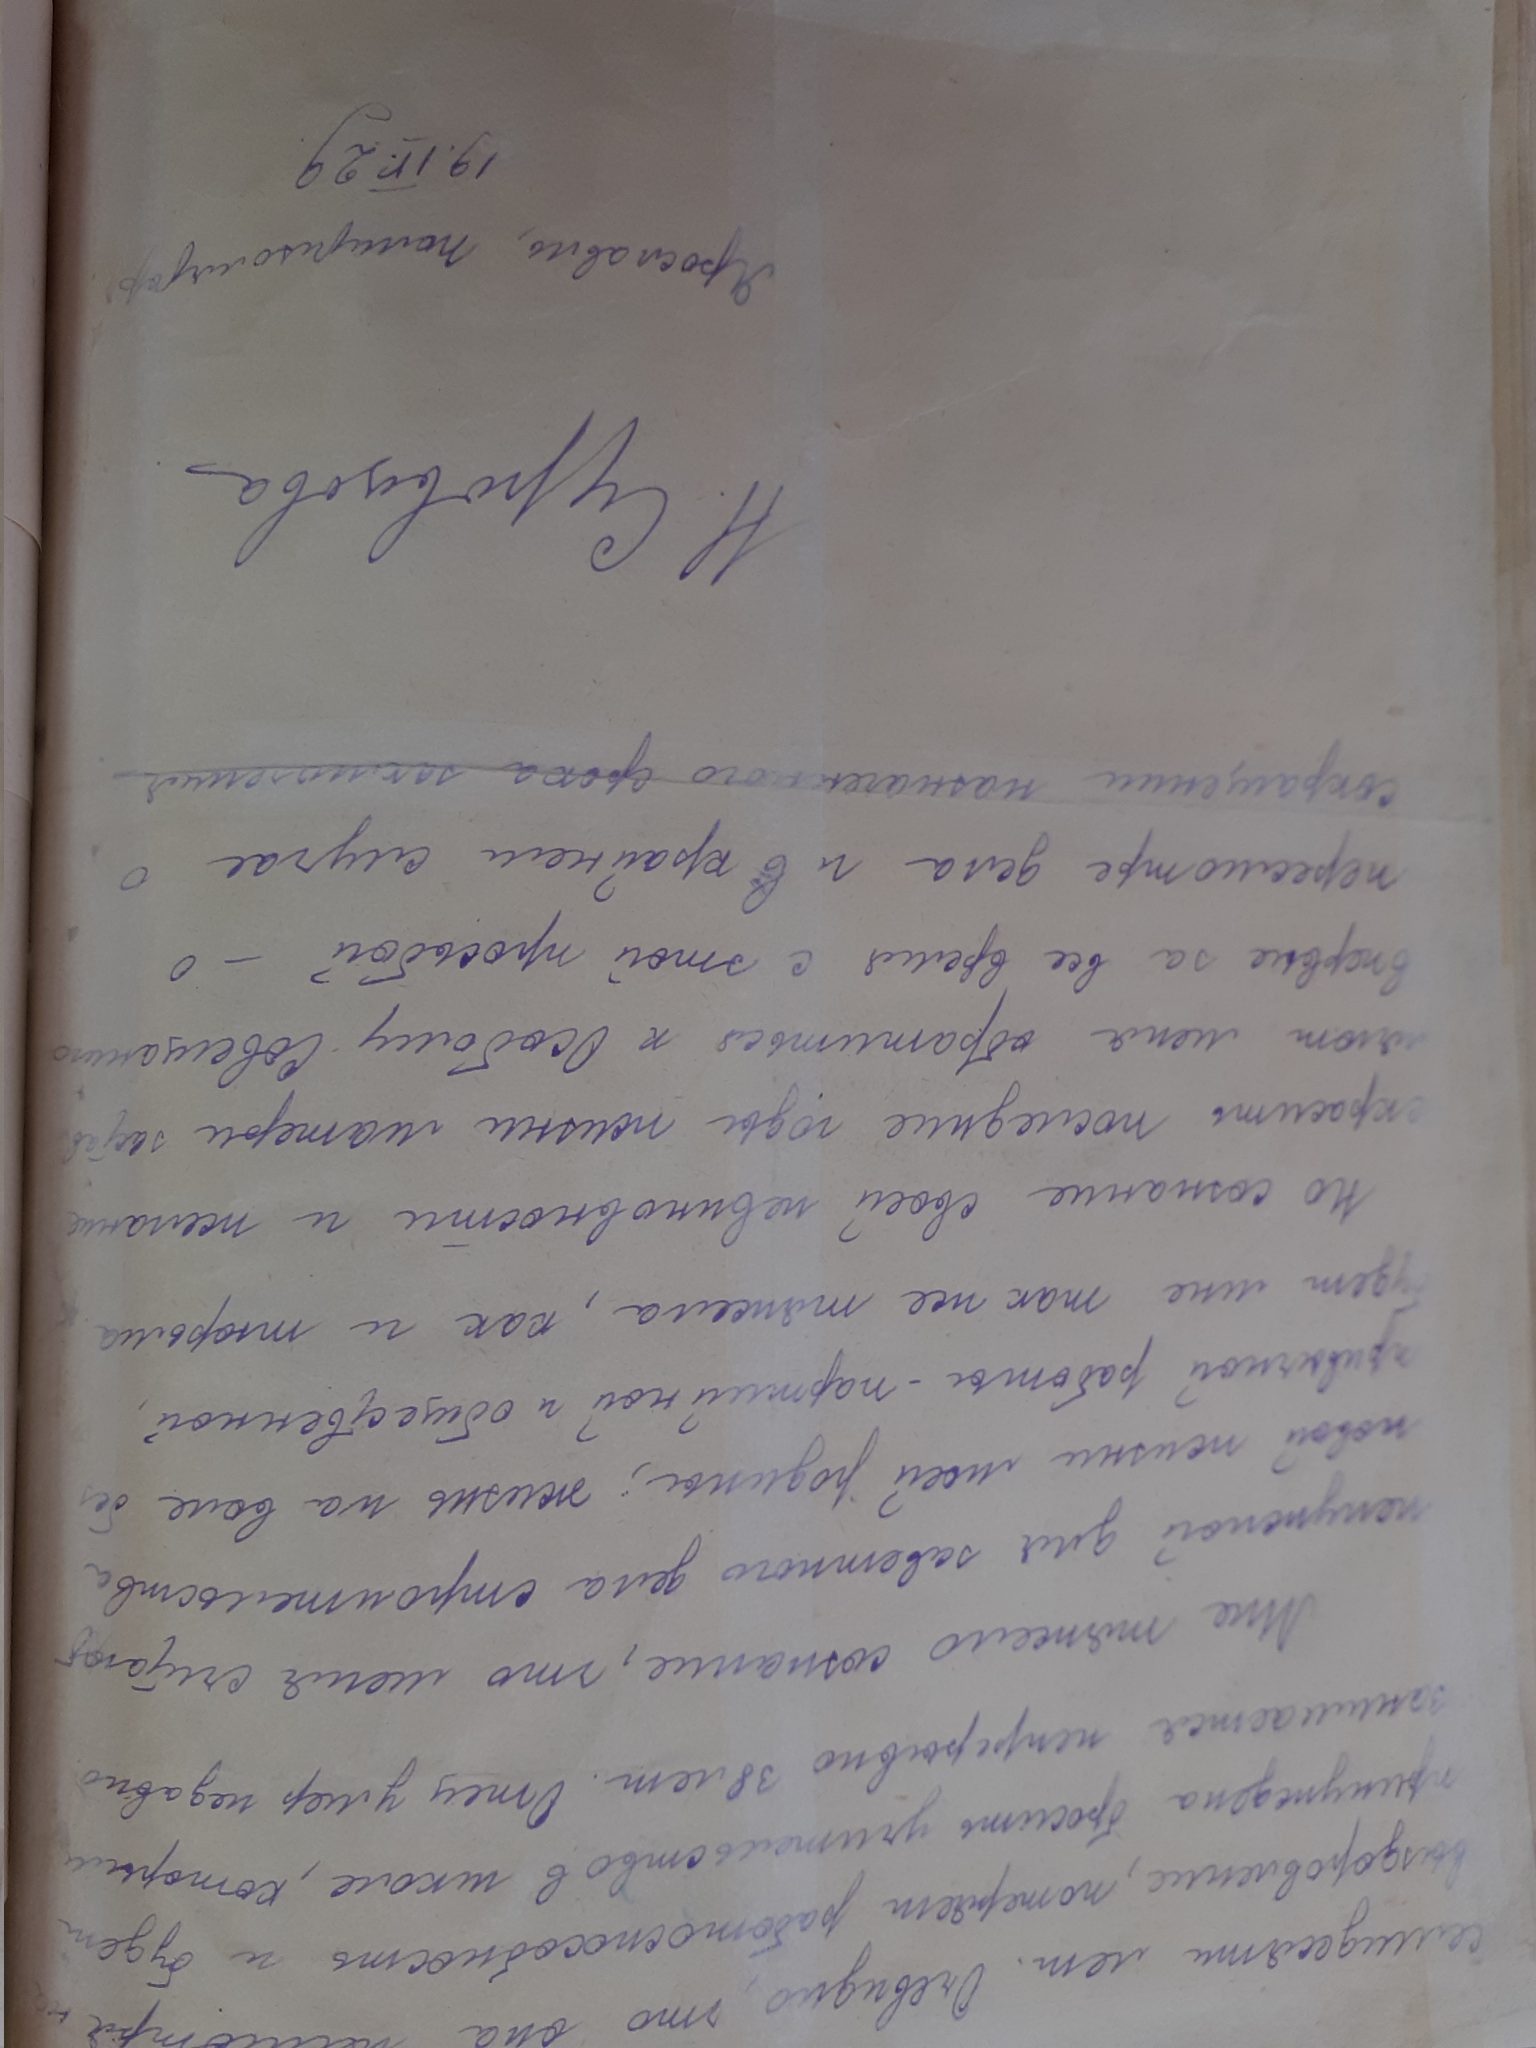 семидесяти лет. Очевидно, что она несмотря на
выздоровление, потеряет работоспособность и будет
принуждена бросить учительство в школе, которым
занимается непрерывно 38 лет. Отец умер недавно
Мне тяжело сознание, что меня считают
ненужной для заветного дела строительства
новой жизни моей родины; жизнь на воле без
привычной работы - партийной и общественной,
будет мне так же тяжела, как и тюрьма
Но сознание своей невиновности и желание
скрасить последние годы жизни матери застав
ляют меня обратиться к Особому Совещанию
впервые за все время с этой просьбой - о
пересмотре дела и в крайнем случае о
сокращении назначенного срока заключения
Н. Суровцова
Ярославль, политизолятор
19.IV.29